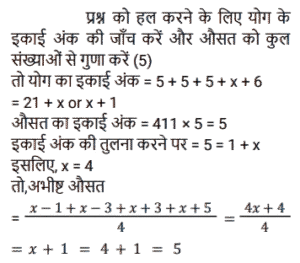 प्रश्न को हल करने के लिए योग के
इकाई अंक की जाँच करें और औसत को कुल
संख्याओं से गुणा करें (5)
तो योग का इकाई अंक = 5 + 5 + 5 + x + 6
= 21 + x or x + 1
औसत का इकाई अंक = 411 × 5 = 5
इकाई अंक की तुलना करने पर = 5 = 1 + x
इसलिए, x = 4
तो,अभीष्ट औसत
= \frac{x-1+x-3+x+3+x+5}{4} = \frac{4x+4}{4}
= x + 1 = 4 + 1 = 5